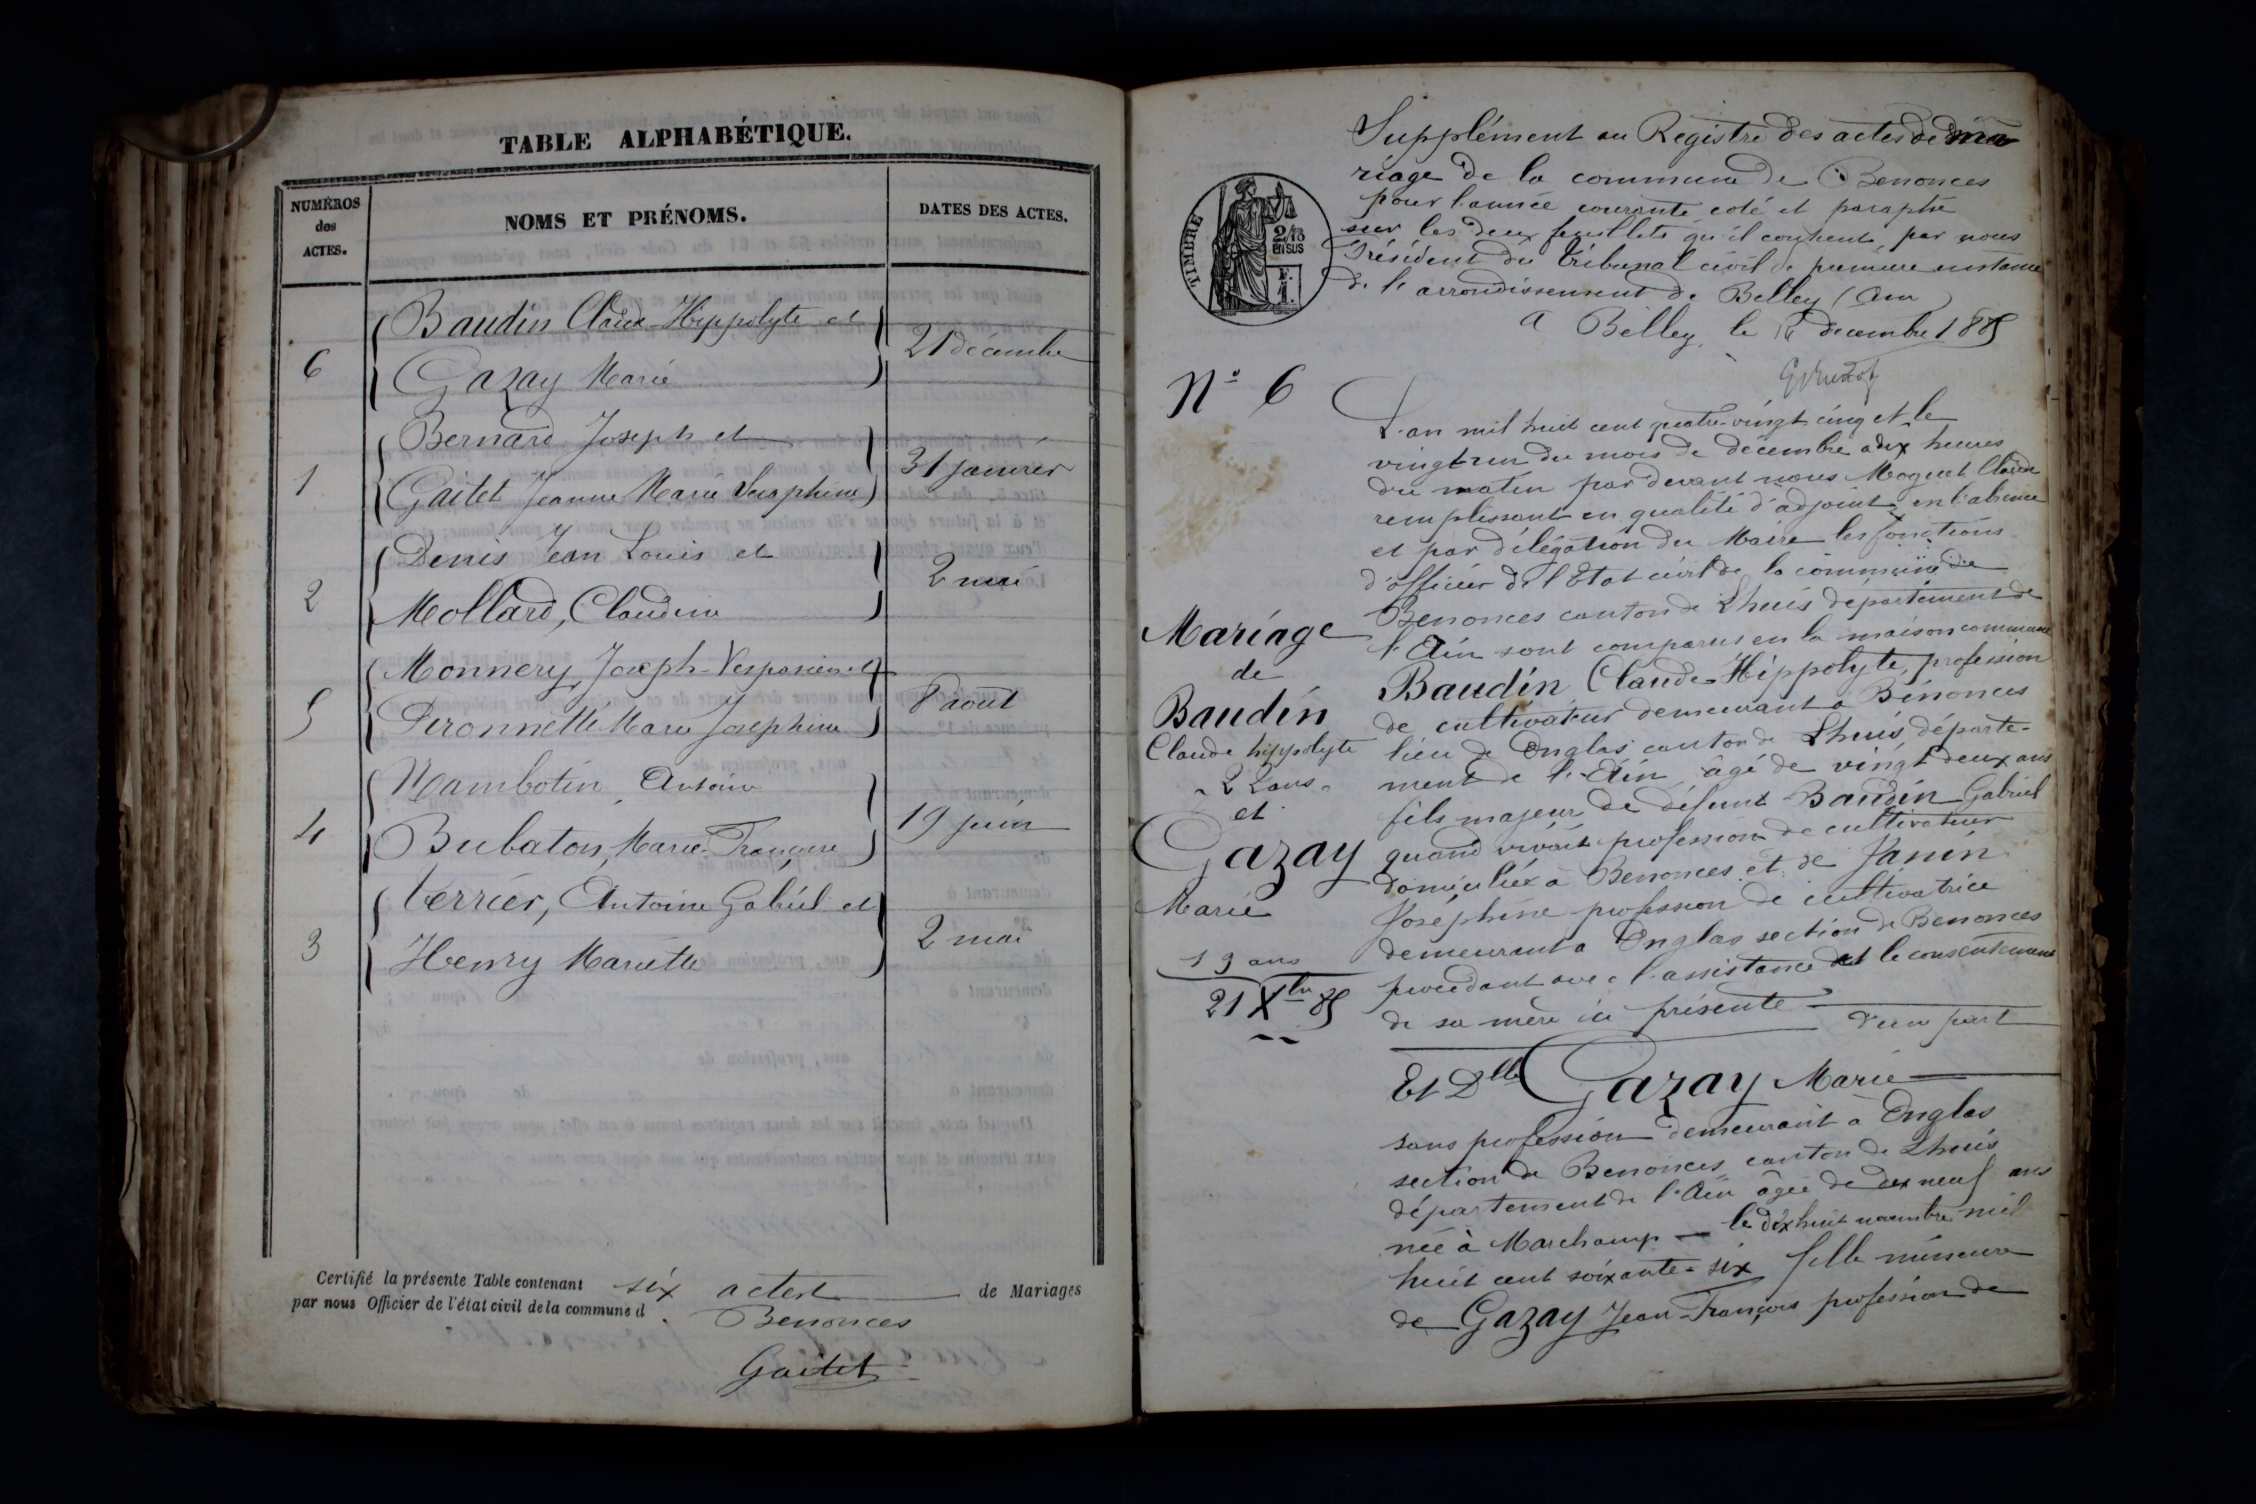 TABLE ALPHABÉTIQUE.
NUMÉROS
des
ACTES.
NOMS ET PRÉNOMS.
DATES DES ACTES.
6
Baudin Claude-Hippolyte et
Gazay Marie
21 décembre
1
Bernard Joseph et
Gaitet Jeanne Marie Séraphine
31 janvier
2
Denis Jean Louis et
Mollard, Claudine
2 mai
5
Monnery, Joseph-Vespasien et
Peronnette Marie Joséphine
8 août
4
Mambotin, Antoine
Bubaton, Marie-Françoise
19 juin
3
Verrier, Antoine Gabriel et
Henry Mariette
2 mai
Certifié la présente Table contenant six actes de Mariages
par nous Officier de l'état civil de la commune d Benonces
Gaitet
Supplément au Registre des actes de ma
riage de la commune de Benonces
pour l'année courante coté et paraphé
sur les deux feuillets qu'il contient, par nous
Président du Tribunal civil de première instance
de l'arrondissement de Belley (Ain)
A Belley, le decembre 1885
TIMBRE
2/10
EN SUS
F.
1.
N° 6
L'an mil huit cent quatre-vingt cinq et le
vingt-un du mois de décembre à dix heures
du matin par devant nous Moguet Claude
remplissant en qualité d'adjoint en l'absence
et par délégation du Maire les fonctions
d'officier de l'Etat civil de la commune de
Benonces canton de Lhuis département de
l'Ain sont comparus en la maison commune
Baudin Claude-Hippolyte, profession
de cultivateur demeurant à Bénonces
lieu de Onglas canton de Lhuis, départe-
ment de l'Ain, âgé de vingt deux ans
fils majeur de défunt Baudin Gabriel
quand vivait profession de cultivateur
domicilié à Benonces et de Janin
Joséphine profession de cultivatrice
demeurant à Onglas section de Benonces
procédant avec l'assistance et le consentement
de sa mère ici présente
d'une part
Mariage
de
Baudin
Claude hippolyte
22 ans
et
Gazay
Marie
19 ans
21 Xbre 85
Et Dlle Gazay Marie
sans profession demeurant à Onglas
section de Benonces canton de Lhuis
département de l'Ain âgée de dix neuf ans
née à Marchamp le dix huit novembre mil
huit cent soixante-six fille mineure
de Gazay Jean-François profession de